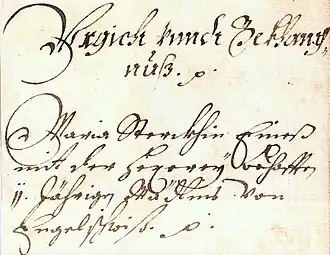 Vrgicht vnndt Bekhant-
nuß. p.
Maria Sterckhin Eineß
mit der Hexerey behafften
11. Jährigen Mädlins Von
Engelschwiß. p.